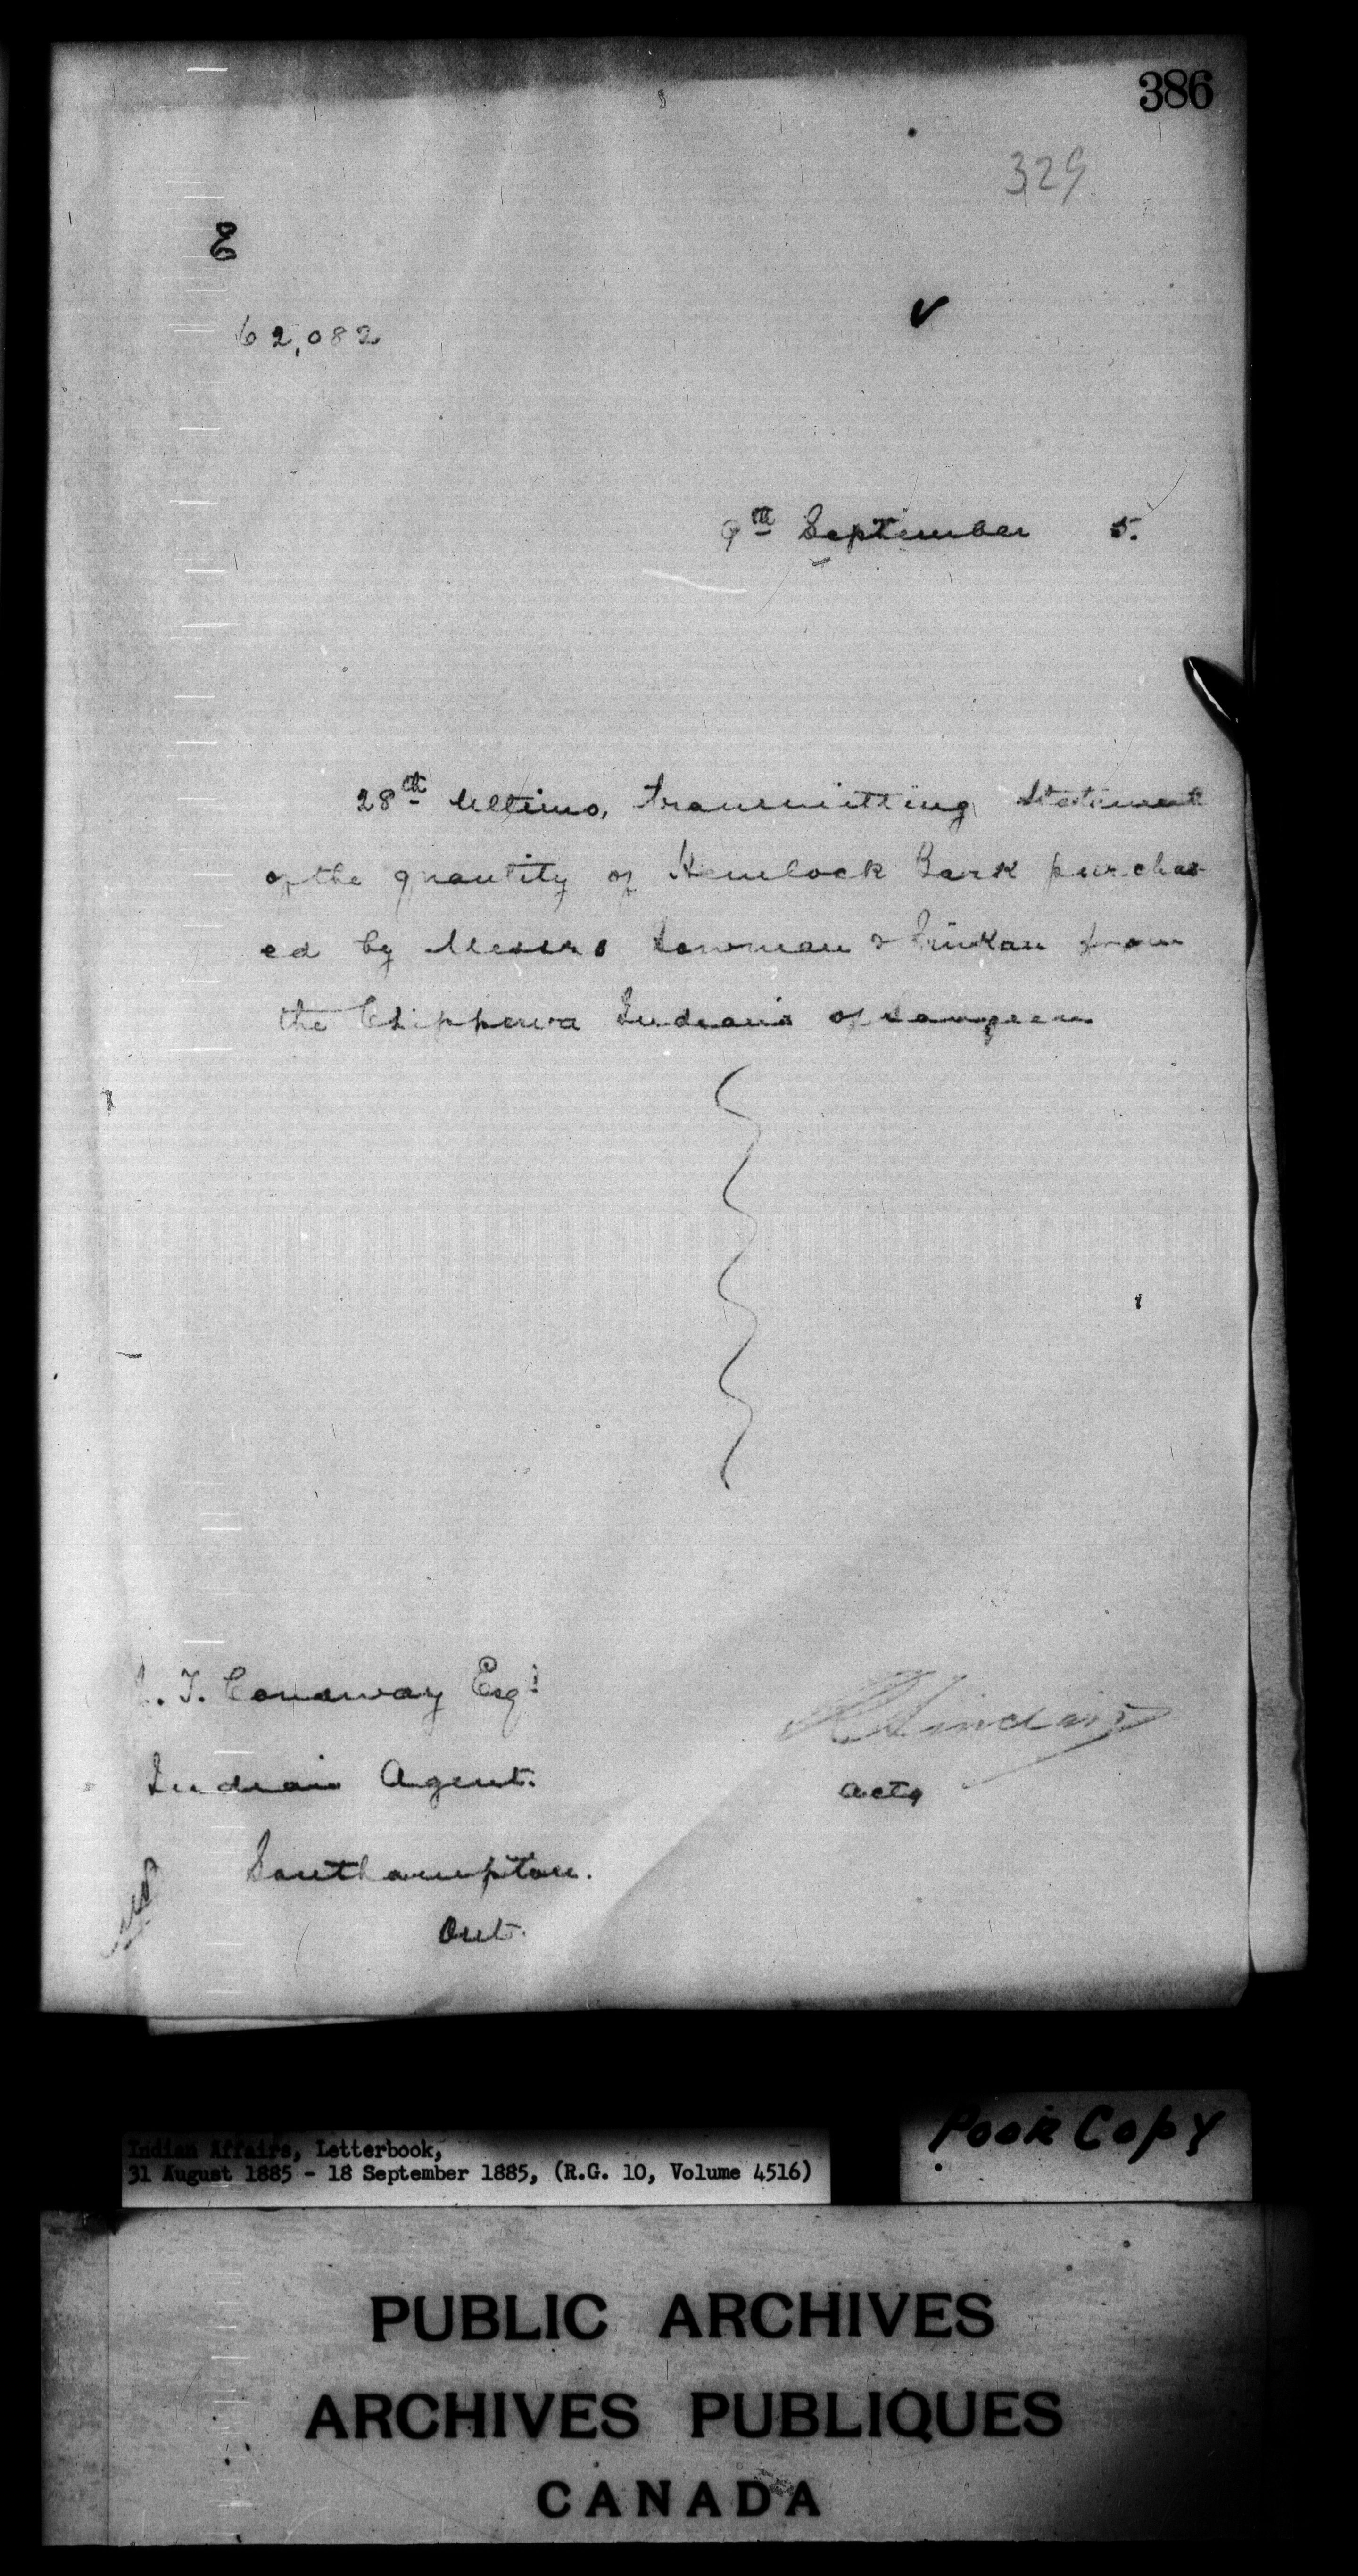 386
329
E
62,082
9th September 5.
28th Ultimo, transmitting Statement
of the quantity of Hemlock Bark purchas
ed by Messrs Bowman & from
the Chippewa Indians of Saugeen
J. T. Conaway Esqr
RSinclair
Indian Agent.
Actg
Southampton.
Ont.
Indian Affairs, Letterbook,
31 August 1885 - 18 September 1885, (R.G. 10, Volume 4516)
Poor Copy
PUBLIC ARCHIVES
ARCHIVES PUBLIQUES
CANADA